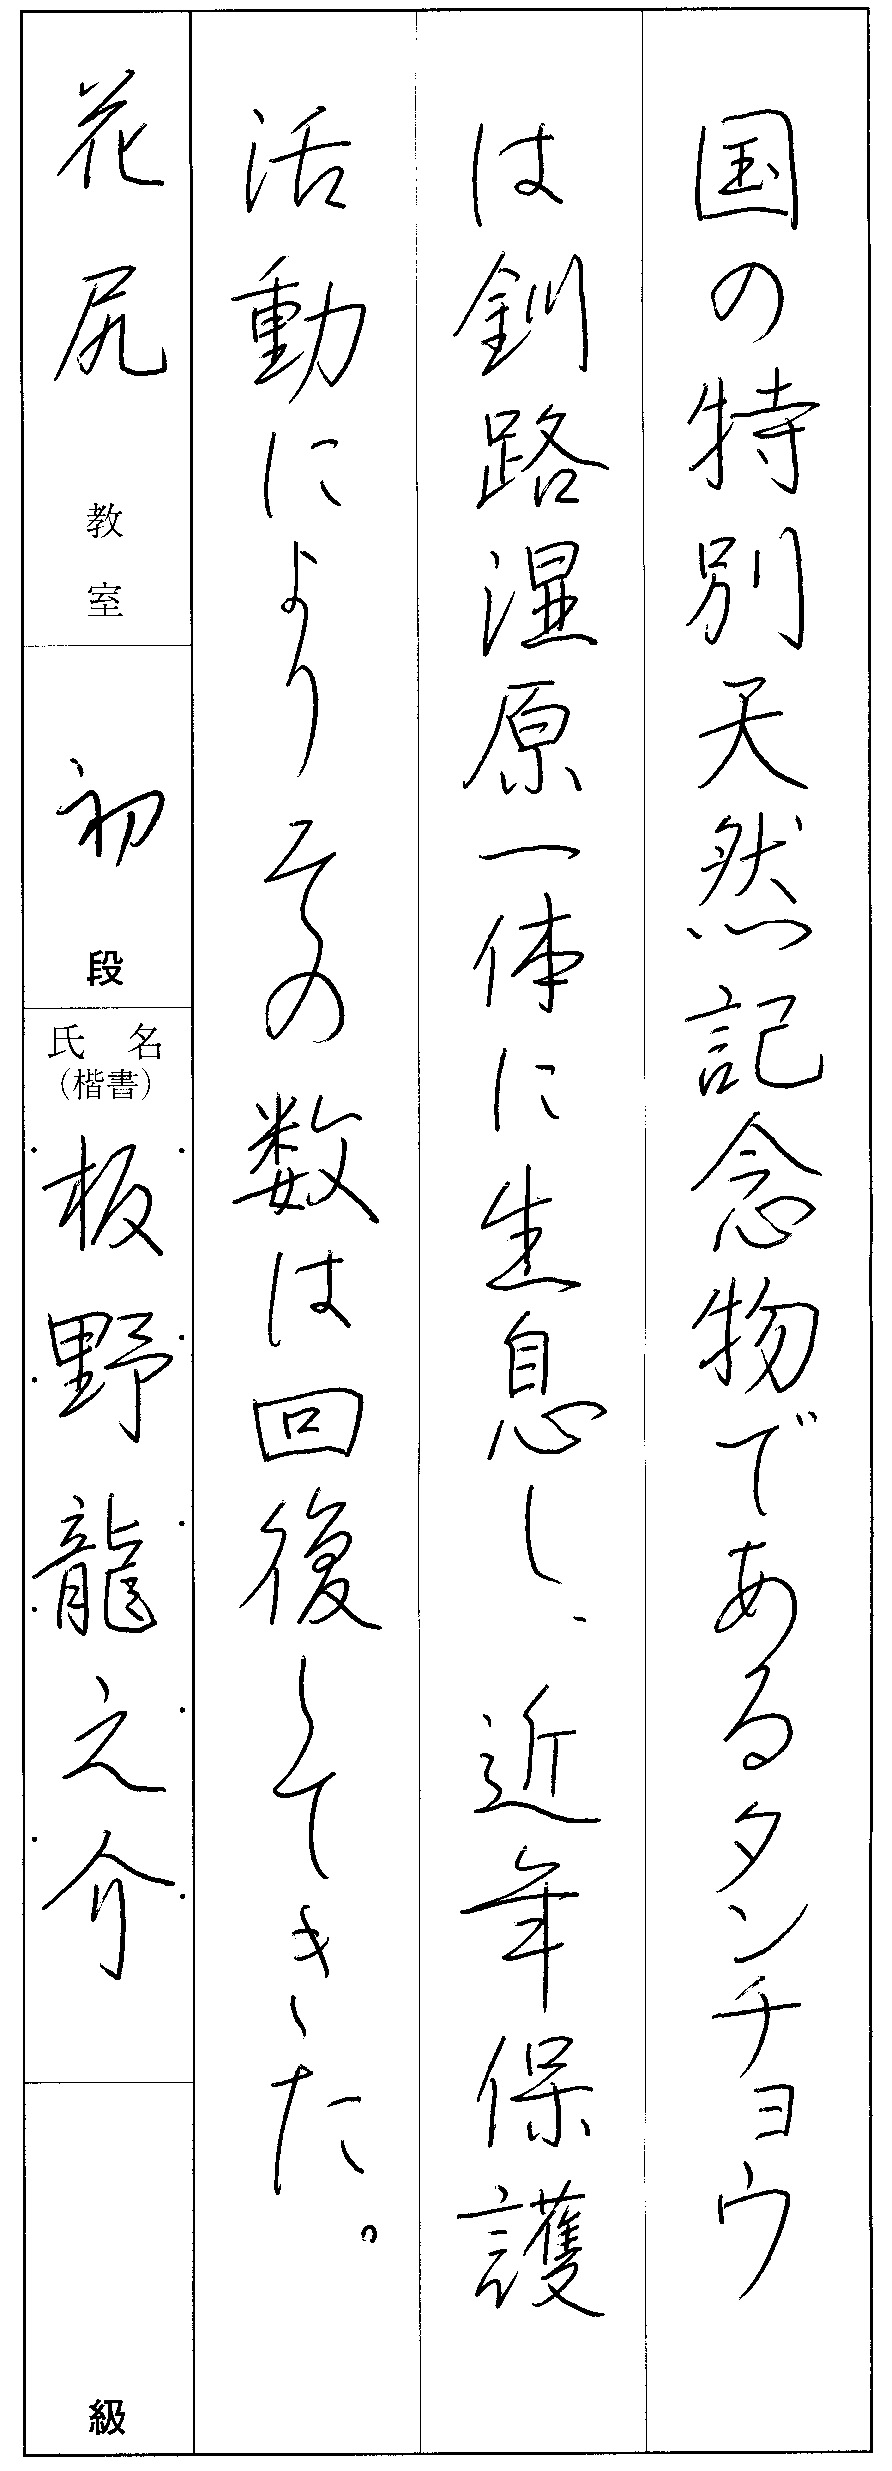 国の特別天然記念物であるタンチョウ
は釧路湿原一体に生息し、近年保護
活動によりその数は回復してきた。
花尻教室
初段
氏名
(楷書)
板野龍之介
級